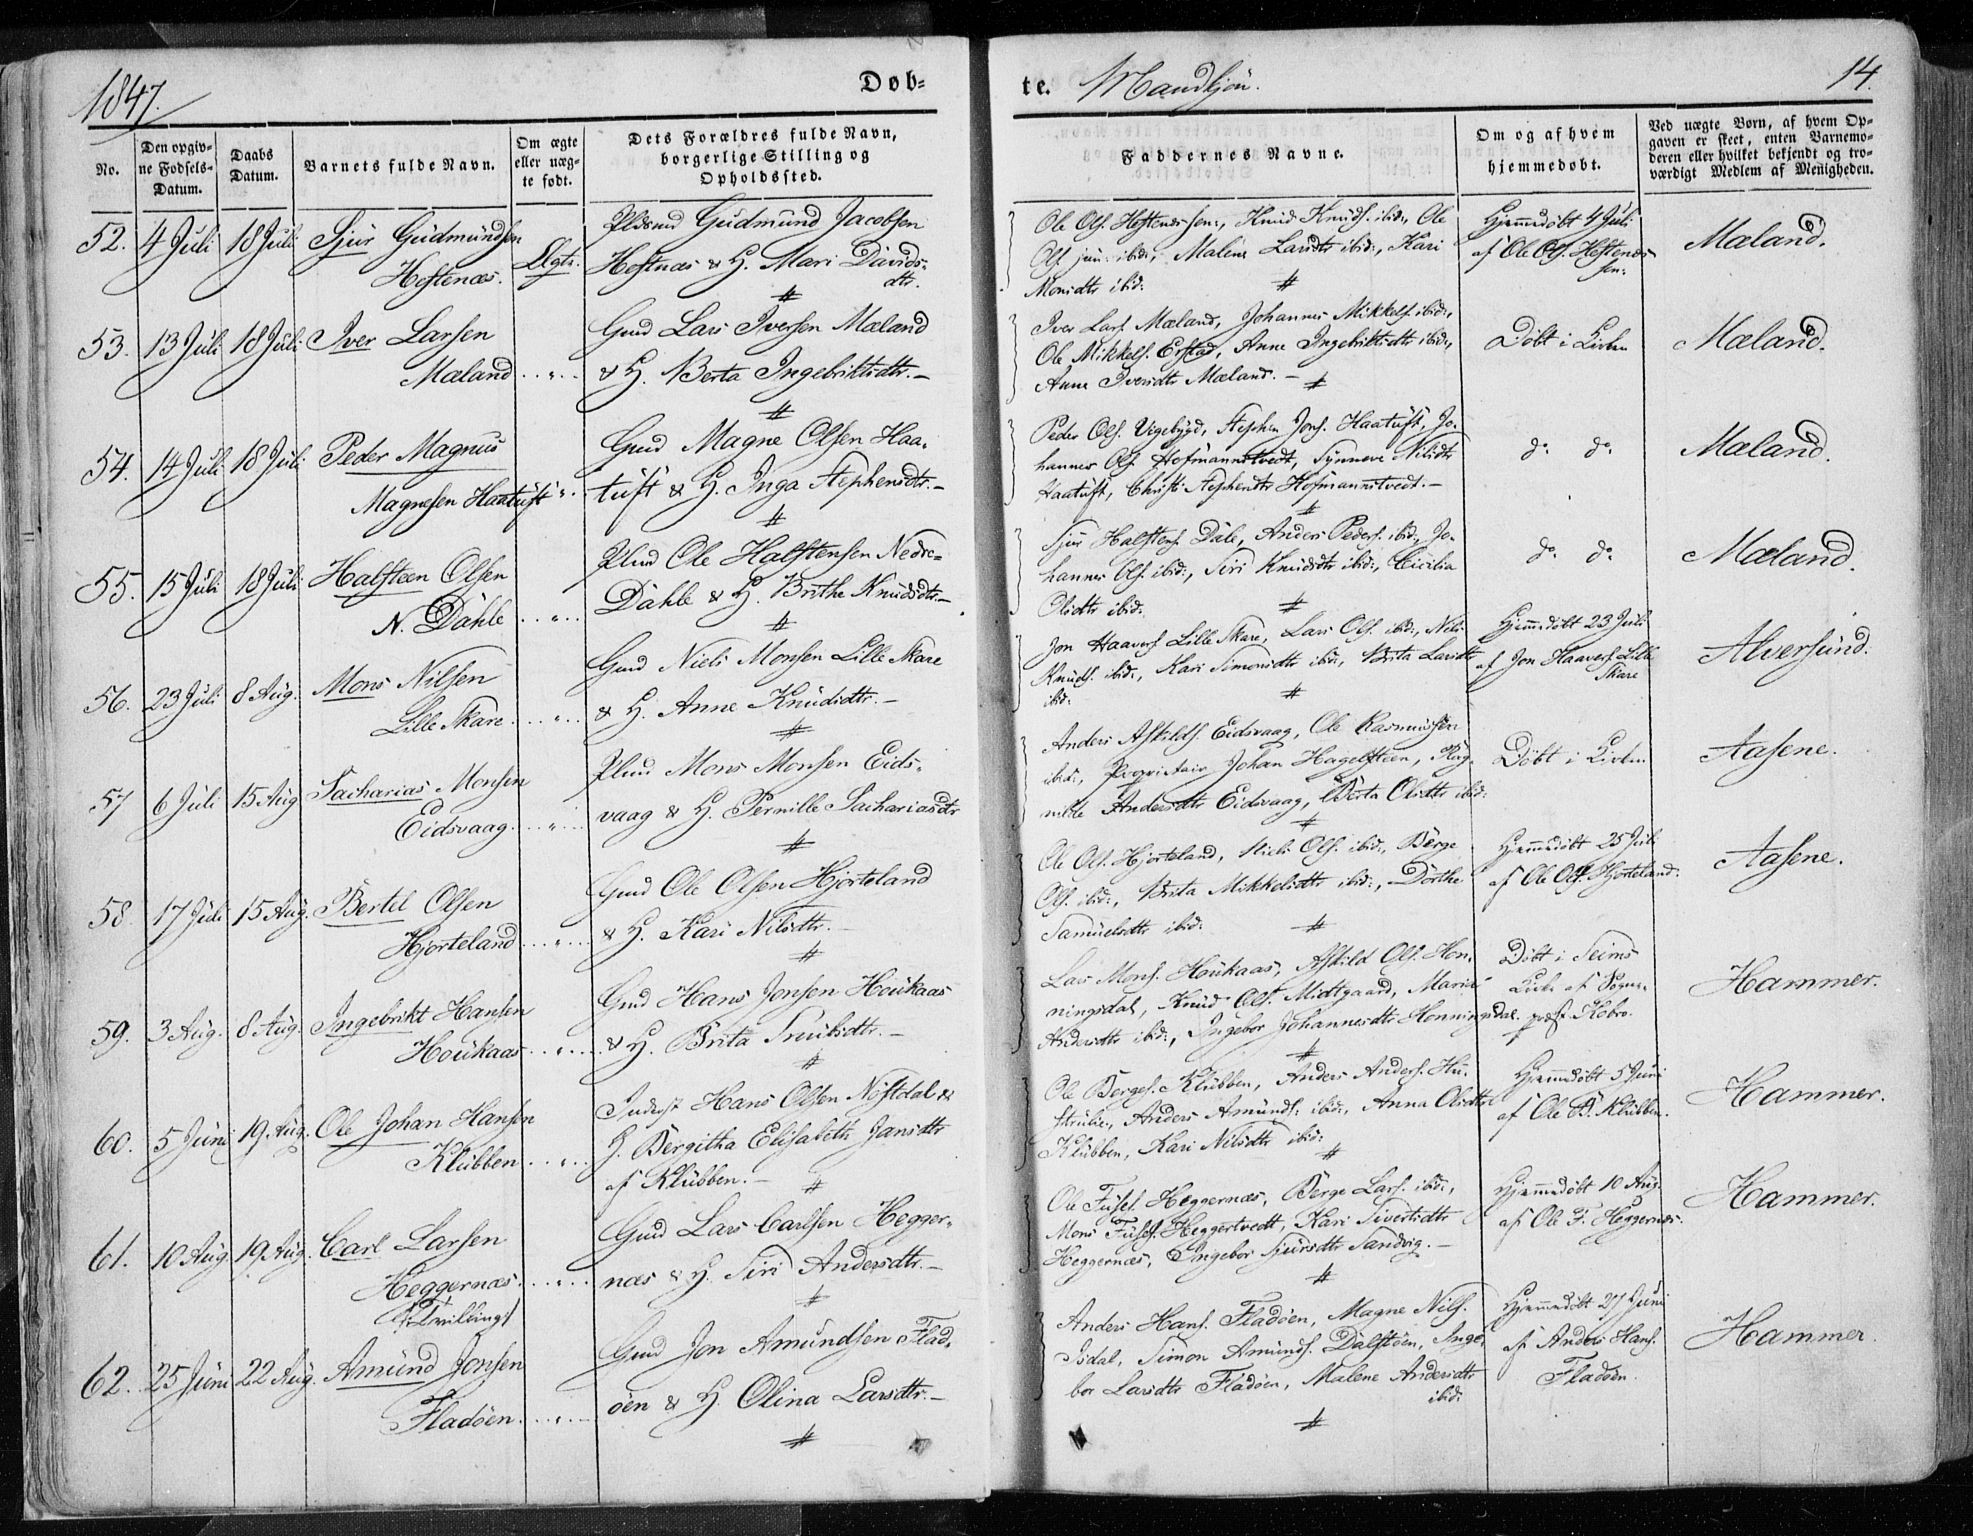 1847.
Døb-
te. Mandkjön.
14.
No.
Den opgiv-
ne Fødsels-
Datum.
Daabs
Datum.
Barnets fulde Navn.
Om ægte
eller uæg-
te født.
Dets Forældres fulde Navn,
borgerlige Stilling og
Opholdssted.
Faddernes Navne.
Om og af hvem
hjemmedøbt.
Ved uægte Børn, af hvem Op-
gaven er skeet, enten Barnemo-
deren eller hvilket bekjendt og tro-
værdigt Medlem af Menigheden.
52. 4 Juli 18 Juli Sjur Gudmundsen
Hestenæs.
Ægte.
Gudmund Jacobsen
Hestnæs & H. Mari Davids-
dtr.
Ole Ols. Hestenæssen:, Knud Knuds. ibid:, Ole
Ols. jun: ibid:, Malene Larsdtr ibid:, Kari
Monsdtr ibid:
Hjemmedöbt 4 Juli
af Ole Ols. Hestenæs
sen:
Mæland.
53. 13 Juli 18 Juli Iver Larsen
Mæland . . „ . .
Gmd Lars Iversen Mæland
& H. Berta Ingebriktsdtr. —
Iver Lars. Mæland, Johannes Mikkels. ibid:,
Ole Mikkels. Erstad, Anne Ingebriktsdtr ibid:,
Anne Iversdtr Mæland. —
Döbt i Kirken
Mæland.
54. 14 Juli 18 Juli Peder Magnus
Magnesen Haatuft „ . .
Gmd Magne Olsen Haa-
tuft & H. Inga Stephensdtr. —
Peder Ols. Vigebygd, Stephen Jons. Haatuft, Jo-
hannes Ols. Hofmannstvedt, Synneve Nilsdtr
Haatuft, Christi Stephensdtr Hofmannstvedt. —
do do
Mæland.
55. 15 Juli 18 Juli Halsteen Olsen
N. Dahle . . „ . .
Plmd Ole Halstensen Nedre-
Dahle & H. Brithe Knudsdtr. —
Sjur Halstens. Dale, Anders Peders. ibid:, Jo-
hannes Ols. ibid:, Siri Knudsdtr ibid:, Cicilia
Olsdtr ibid:
do do
Mæland.
56. 23 Juli 8 Aug. Mons Nilsen
Lille Skare . . „ . .
Gmd Niels Monsen Lille Skare
& H. Anne Knudsdtr. —
Jon Haavers. Lille Skare, Lars Ols. ibid:, Nils
Knuds. ibid:, Kari Simonsdtr ibid:, Brita Larsdtr
ibid:
Hjemmedöbt 23 Juli
af Jon Haavers. Lille
Skare
Alversund.
57 6 Juli 15 Aug Sacharias Monsen
Eidsvaag . . „ . .
Plmd Mons Monsen Eids-
vaag & H. Pernille Sachariasdtr
Anders Askilds. Eidsvaag, Ole Rasmussen
ibid:, Proprietair Johan Hagelsteen, Rag-
nilde Andersdtr Eidsvaag, Berta Olsdtr ibid:
Döbt i Kirken
Aasene.
58. 17 Juli 15 Aug. Bertel Olsen
Hjorteland . . „ . .
Gmd Ole Olsen Hjorteland
& H. Kari Nilsdtr. —
Ole Ols. Hjorteland, Niels Ols. ibid:, Børge
Ols. ibid:, Brita Mikkelsdtr ibid:, Dorthe
Samuelsdtr ibid:
Hjemmedöbt 25 Juli
af Ole Ols. Hjorteland.
Aasene.
59. 3 Aug. 8 Aug. Ingebrikt Hansen
Houkaas . . „ . .
Gmd Hans Jonsen Houkaas
& H. Brita —
Lars Mons. Houkaas, Askild Ols. Hon-
ningsdal, Knud Ols. Midtgaard, Maria
Andersdtr ibid:, Ingebor Johannesdtr Honningsdal.
Döbt i Seims
Kirke af Sogne-
præst Kobro.
Hammer.
60. 5 Juni 19 Aug. Ole Johan Hansen
Klubben . . „ . .
Inderst Hans Olsen Nöstdal &
H. Bergitha Elisabeth Jansdtr
af Klubben. —
Ole Berges. Klubben, Anders Anders. Hu-
, Anders Amunds. ibid:, Anna Olsdtr
Klubben, Kari Nilsdtr ibid:
Hjemmedöbt 5 Juni
af Ole B. Klubben.
Hammer.
61. 10 Aug. 19 Aug. Carl Larsen
Heggernæs . . „ . .
(Tvilling)
Gmd Lars Carlsen Hegger-
næs & H. Siri Andersdtr. —
Ole Heggernæs, Berge Lars. ibid:,
Mons Heggertvedt, Kari Sivertsdtr
Heggernæs, Ingebor Sjursdtr Sandvig. —
Hjemmedöbt 10 Aug.
af Ole F. Heggernæs.
Hammer.
62. 25 Juni 22 Aug. Amund Jonsen
Fladöen . . „ . .
Gmd Jon Amundsen Flad-
öen & H. Olina Larsdtr. —
Anders Hans. Fladöen, Magne Nils.
Isdal, Simon Amunds. Dalstöen, Inge-
bor Larsdtr Fladöen, Malene Andersdtr
ibid:
Hjemmedöbt 27 Juni
af Anders Hans.
Fladöen.
Hammer.